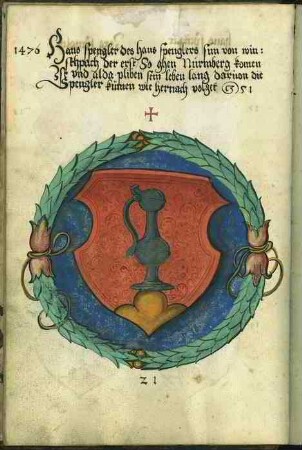 1476 Hans spengler des hans spenglers sun von win:
der erst So ghen Nürmberg komen
vnd alda pliben sein leben lang dauon die
Spengler kumen wie hernach volget 1551
21